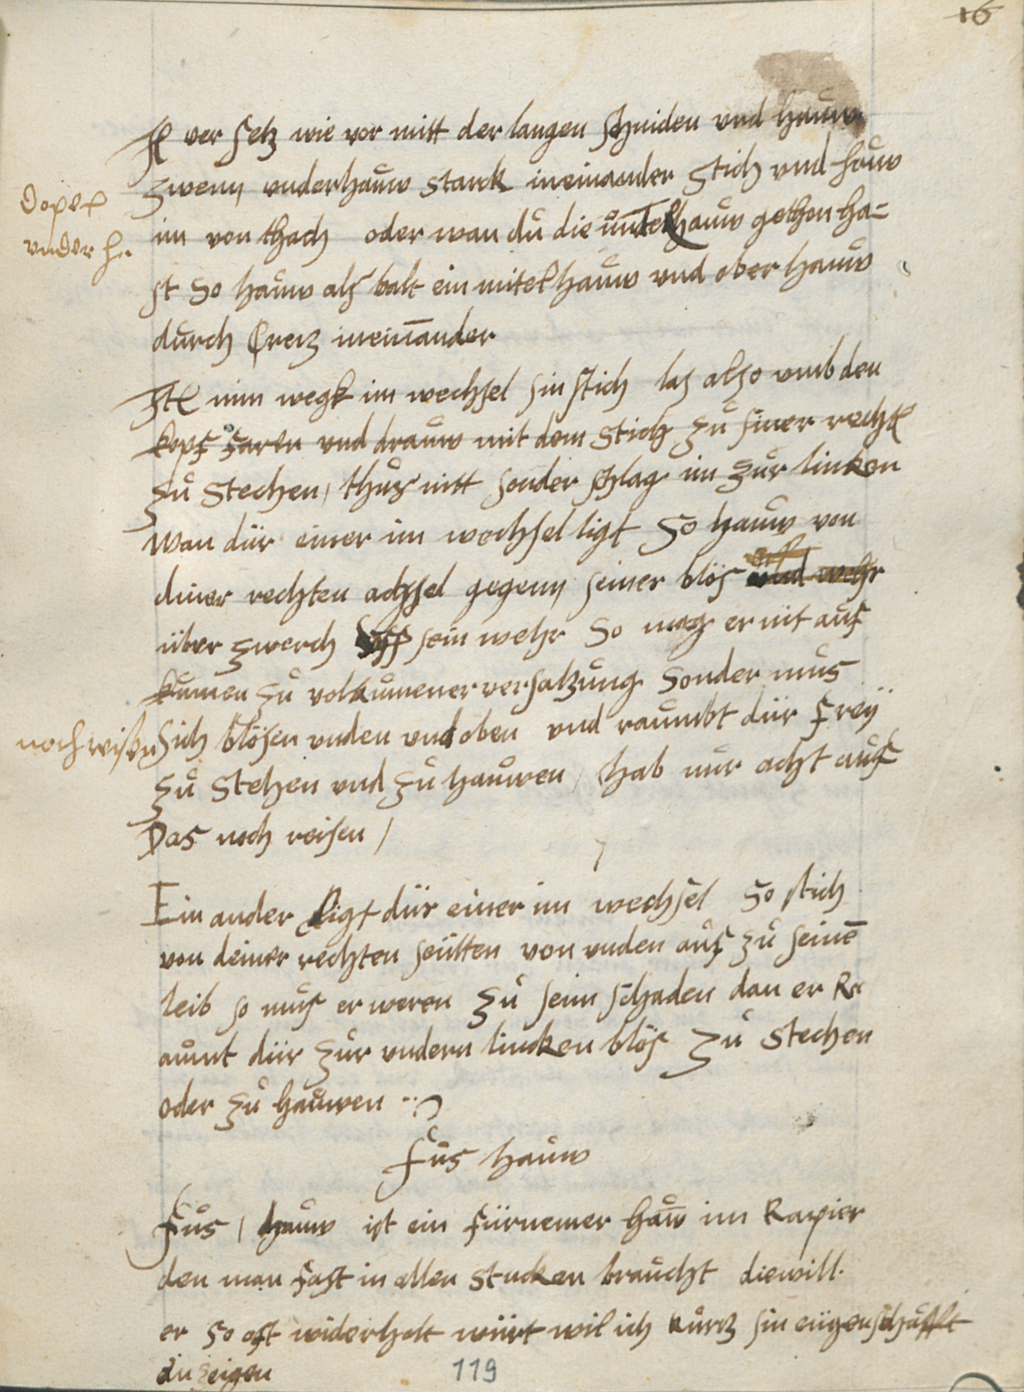 16
ver setz wie vor mitt der langen schniden und hauw
zwenn underhauw starck ineinander stich und hauw
im von thach oder wan du die underhauw gethon ha=
st So hauw als balt ein mitel hauw und oberhauw
durch Creiz ineinander
doppel
under h.
Itl nim wegk im wechsel sin stich las also umb den
kopf faren und drauw mit dem stich zu siner recht
zu stechen, thus nitt sonder schlag im zur linken
Wan dür einer im wechsel ligt So hauw von
diner rechten achsel gegenn seiner blös wehr
über zwerch uff sein wehr So mag er nit auf
kumen zu volkumener versatzung Sonder mus
sich blösen unden und oben und raumbt dür freÿ
zu stehen und zu hauwen, hab nur acht auf
Das noch reisen /
noch reisen
Ein ander ligt dür einer im wechsel So stich
von deiner rechten seitten von unden auf zu seinē
leib so mus er weren zu seim schaden dan er Ra
aumt dür zur undern lincken blös zu stechen
oder zu hauwen
Fus hauw
Fus / hauw ist ein fürnemer hauw im Rapier
den man fast in allen stucken braucht diewill
er so oft widerholt würt wil ich kurtz sin eigenschafft
anzeigen
119